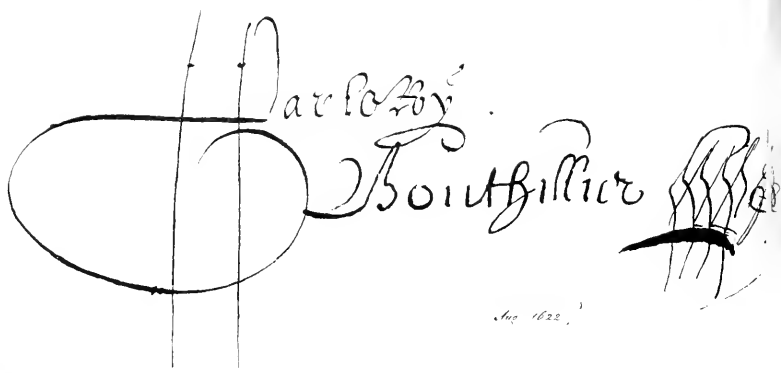 Par le Roy
Bouthillier
Aug 1622